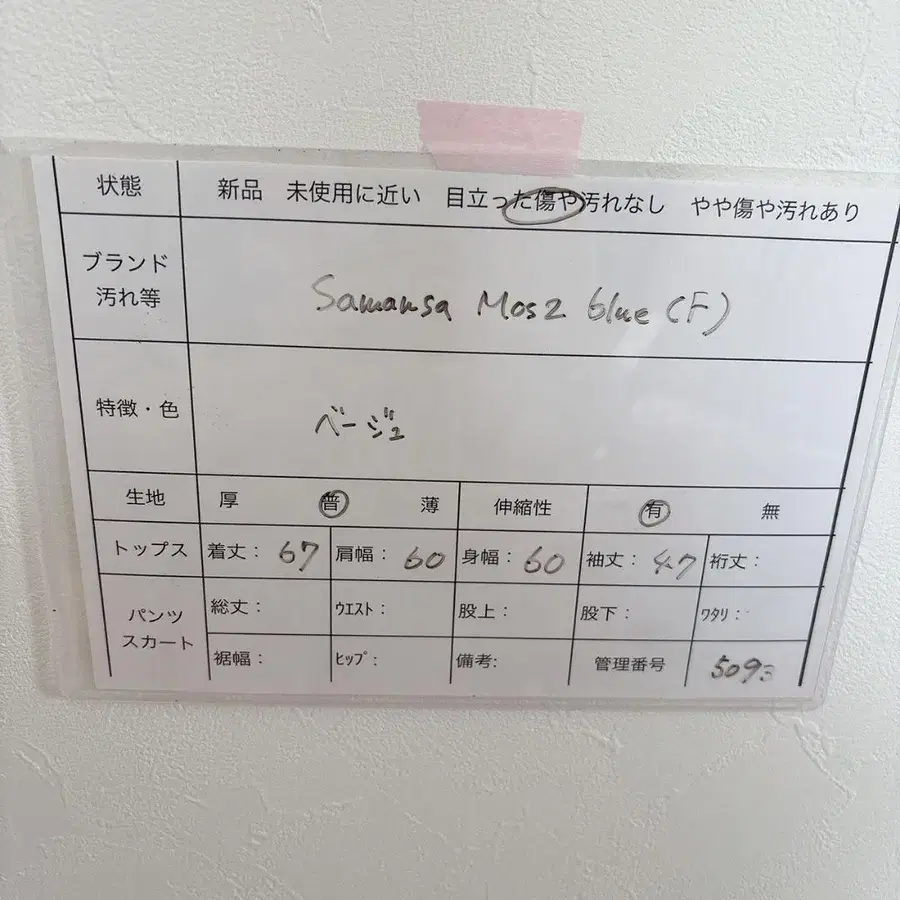 状態 新品 未使用に近い 目立った傷や汚れなし やや傷や汚れあり
ブランド
汚れ等
Samansa Mos2 blue (F)
特徴・色 ベージュ
生地 厚 普 薄 伸縮性 有 無
トップス 着丈: 67 肩幅: 60 身幅: 60 袖丈: 47 裄丈:
パンツ
スカート
総丈: ｳｴｽﾄ: 股上: 股下: ﾜﾀﾘ:
裾幅: ﾋｯﾌﾟ: 備考: 管理番号 5093